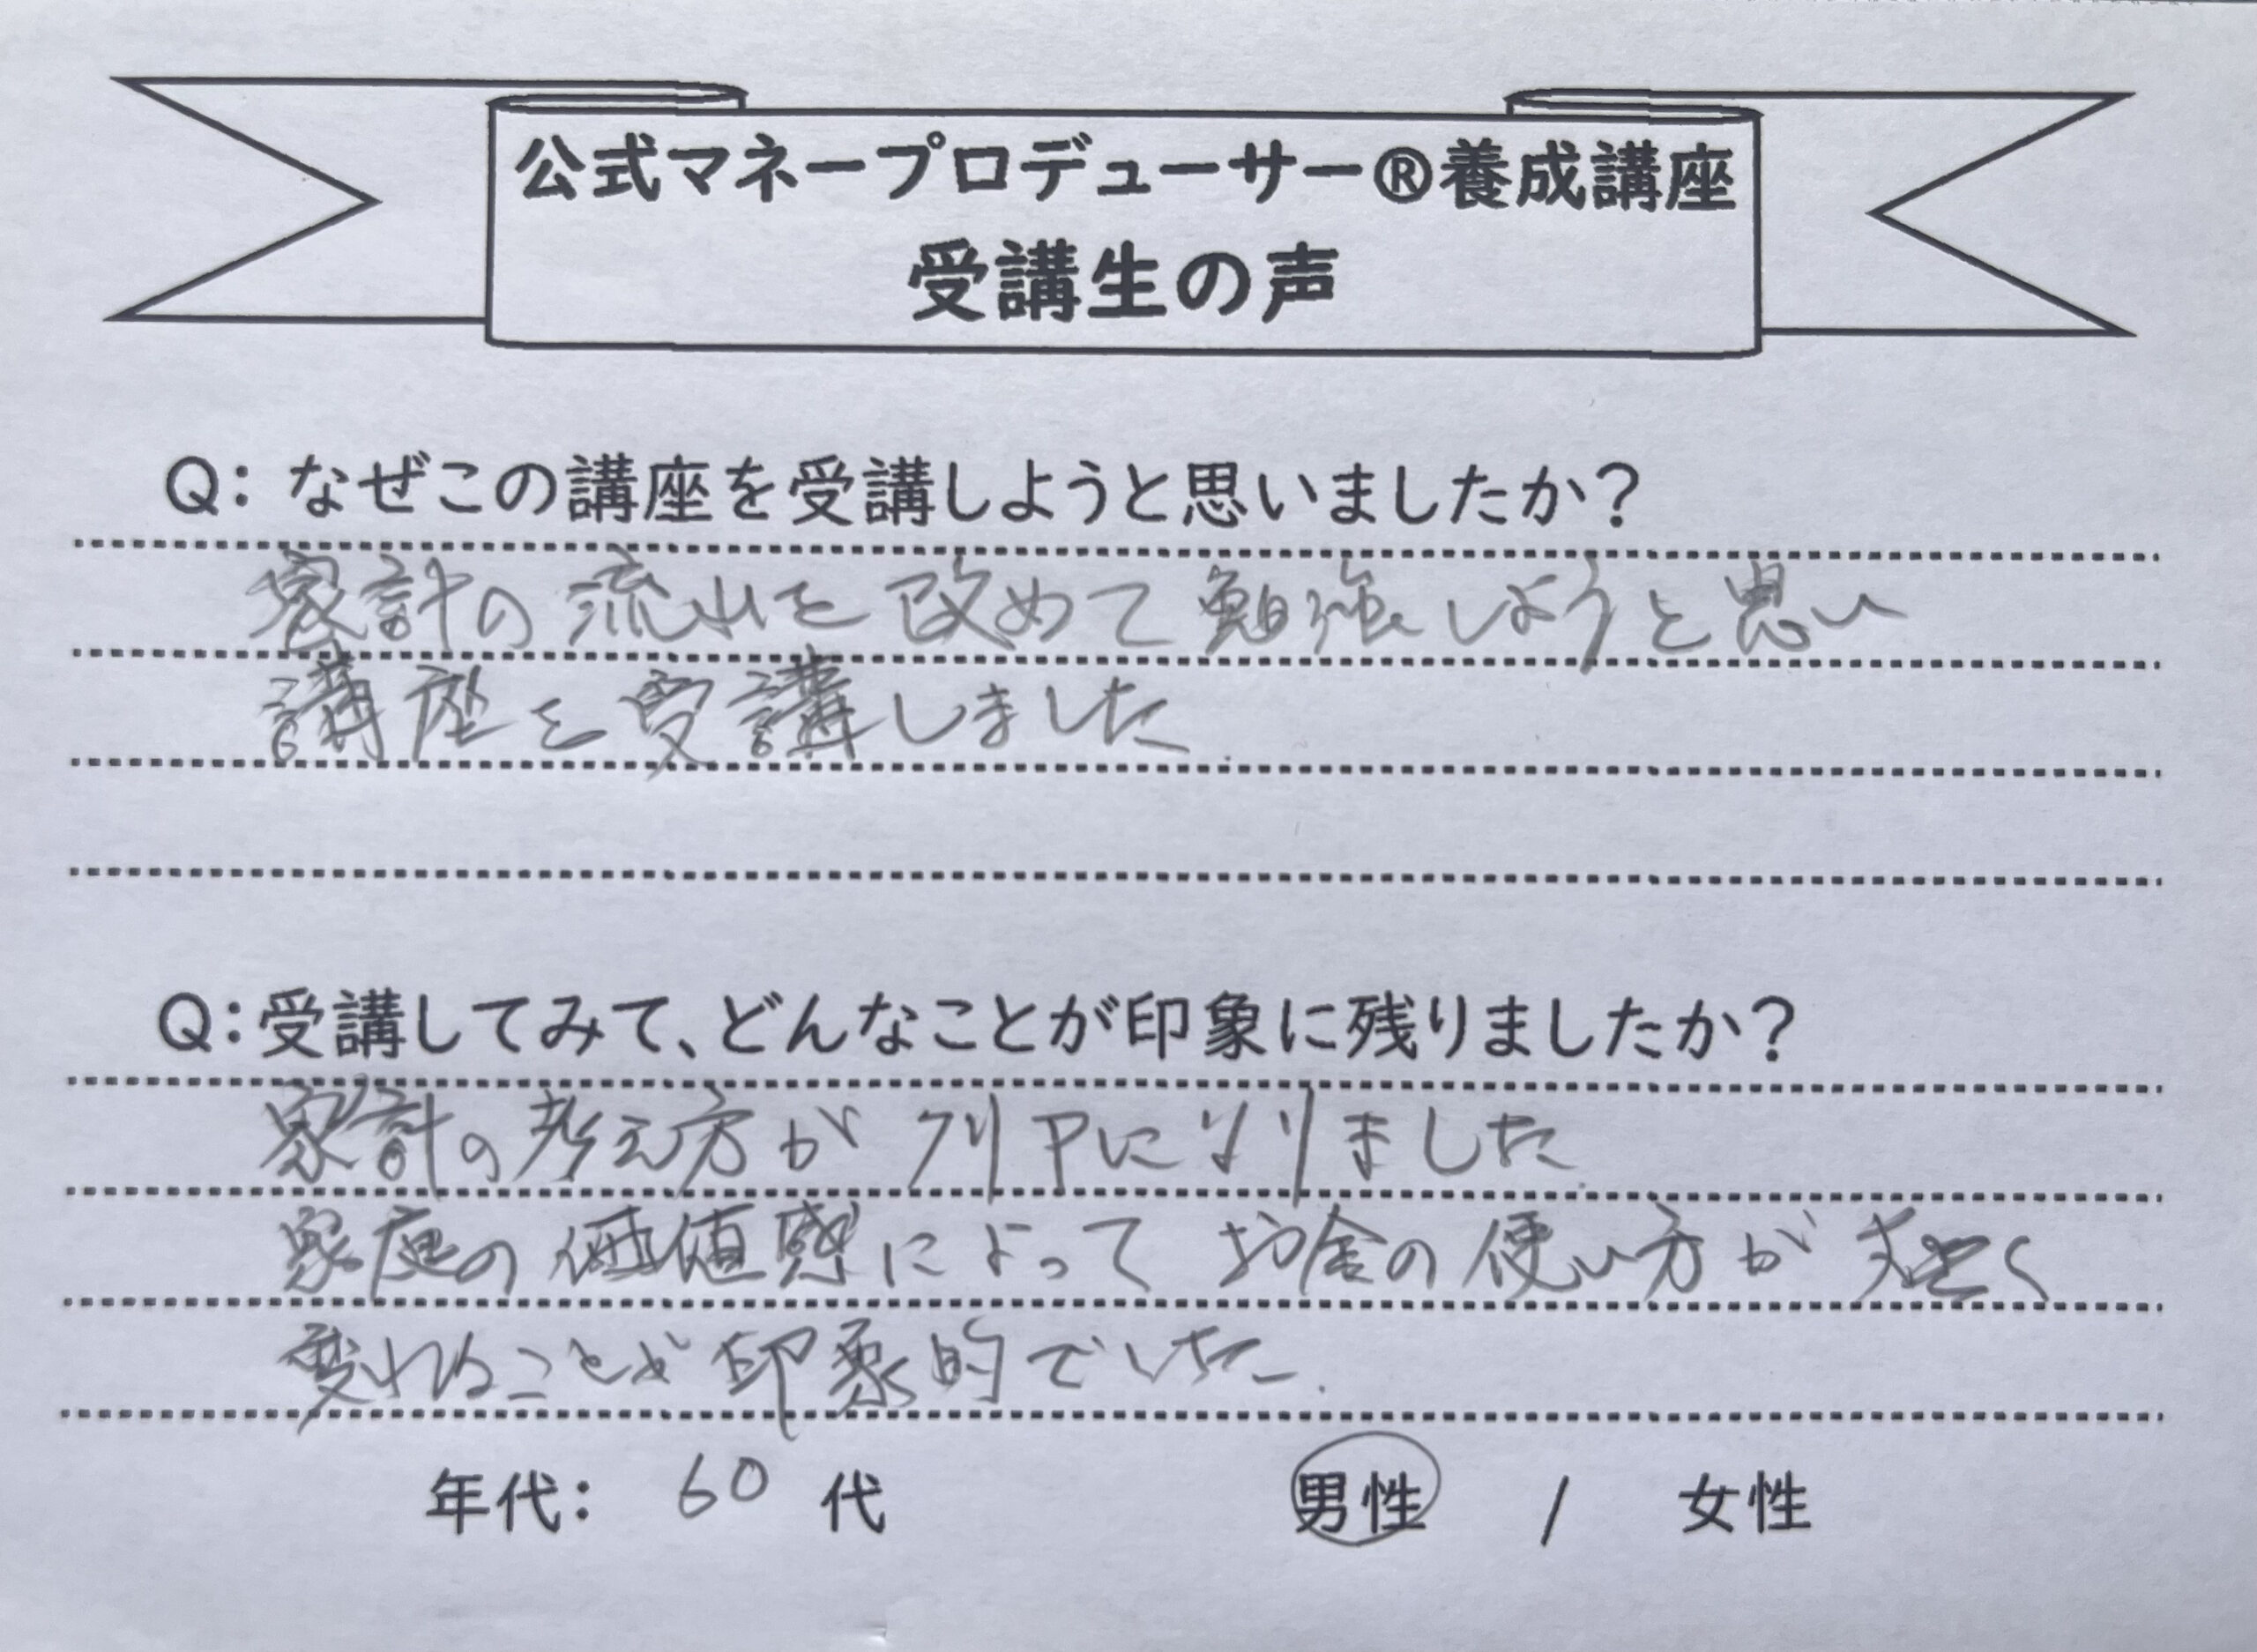 公式マネープロデューサー®養成講座
受講生の声
Q: なぜこの講座を受講しようと思いましたか?
家計の流出を改めて勉強しようと思い
講座を受講しました.
Q:受講してみて、どんなことが印象に残りましたか?
家計の考え方がクリアになりました.
家庭の価値感によってお金の使い方が大きく
変わることが印象的でした.
年代: 60 代 男性 / 女性